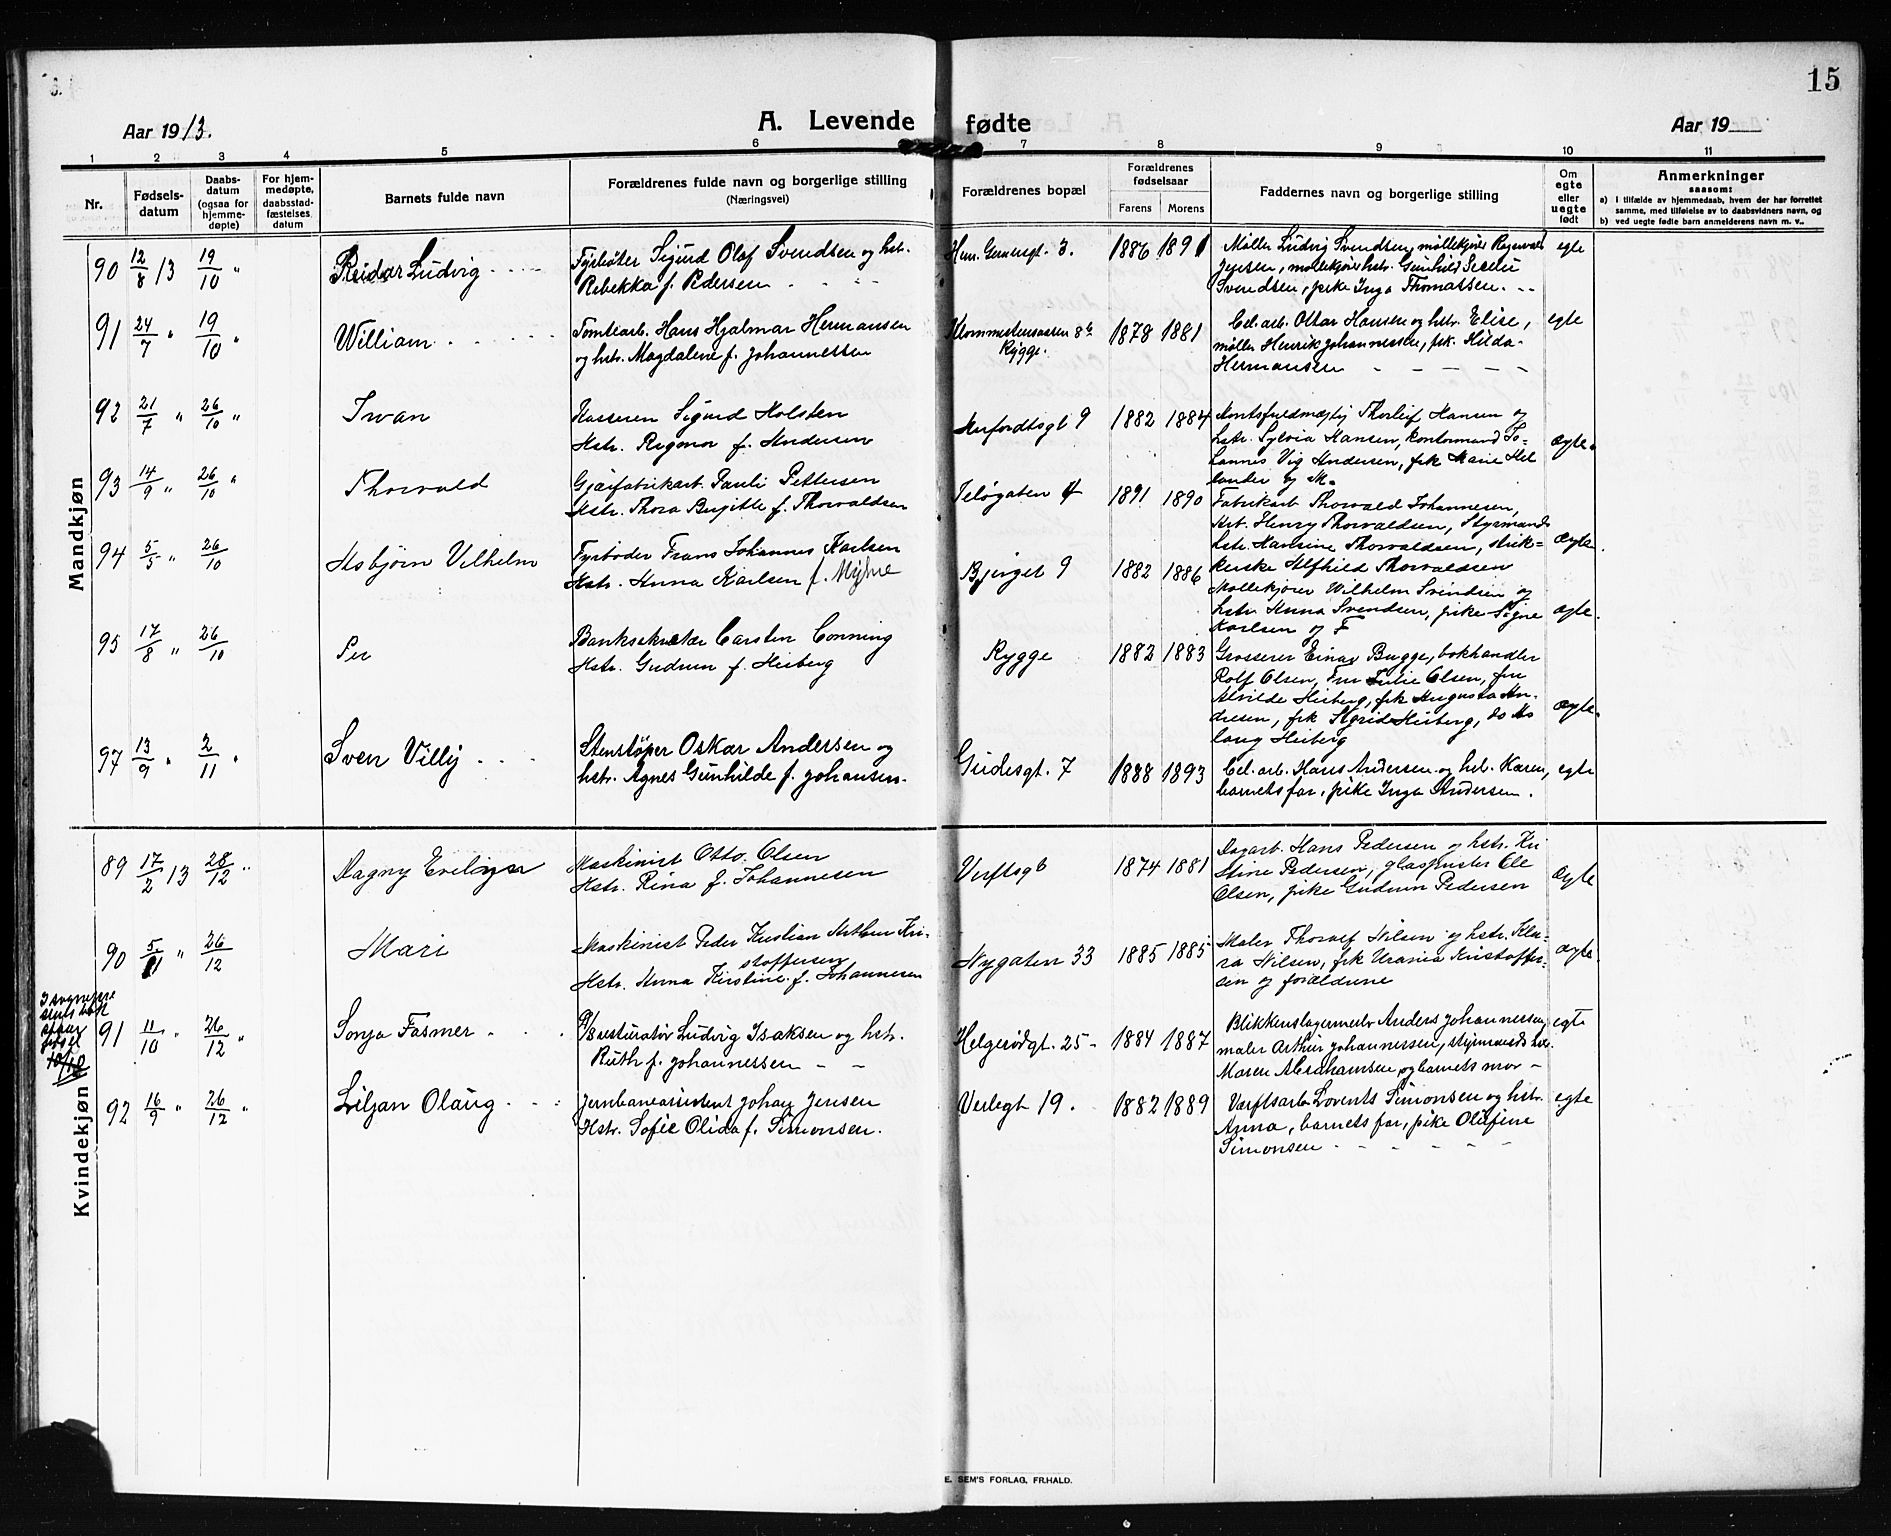 15
Aar 1913.
A. Levende fødte
Aar 19
1 2 3 4 5 6 7 8 9 10 11
Nr.
Fødselsdatum
Daabsdatum (ogsaa for hjemmedøpte)
For hjemmedøpte, daabsstadfæstelses datum
Barnets fulde navn
Forældrenes fulde navn og borgerlige stilling
(Næringsvei)
Forældrenes bopæl
Forældrenes fødselsaar
Farens Morens
Faddernes navn og borgerlige stilling
Om egte eller uegte født
Anmerkninger
saasom:
a) I tilfælde av hjemmedaab, hvem der har forrettet
samme, med tilføielse av to daabsvidners navn, og
b) ved uegte fødte barn anmelderens navn m. v..
Mandkjøn
90 12/8 13 19/10 " Reidar Ludvig
Fyrbøter Sigurd Olaf Svendsen og hstr.
Rebekka f. Pedersen
3. 1886 1891
Møller Ludvig Svendsen, møllekjører
Jensen, møllekjörerhstr. Gunhild
Svendsen, pike Inga Thomassen.
egte
91 24/7 " 19/10 " William
Tomtearb. Hans Hjalmar Hermansen
og hstr. Magdalene f. Johannessen
Rygge.
1878 1881
Cel. arb. Ottar Hansen og hstr. Elise,
møller Henrik Johannessen, frk. Hilda
Hermansen
egte
92 21/7 " 26/10 " Iwan
Kasserer Sigurd Holsten
Hstr. Ragnar f. Andersen
9 1882 1884
Kontsfuldmægtig Thorleif Hansen og
hstr. Sylvia Hansen, kontormand Jo-
hannes Vig Andersen, frk Marie Hel
lander og M.
ægte.
93 14/9 " 26/10 " Thorvald
Gjærfabrikarb. Pauli Pettersen
Hstr. Thora Birgitte f. Thorvaldsen
Jeløgaten 4 1891 1890
Fabrikarb Thorvald Johannesen,
Arb. Henry Thorvaldsen, Styrmands
hstr. Hansine Thorvaldsen, strik-
kerske Alfhild Thorvaldsen
ægte.
94 5/5 " 26/10 Asbjørn Vilhelm
Fyrbøder Frans Johannes Karlsen
Hstr. Anna Karlsen f. Myhre
Bjerget 9 1882 1886
Møllekjører Wilhelm Svendsen og
hstr Anna Svendsen, pike Signe
Karlsen og F
ægte.
95 17/8 " 26/10 Per
Banksekretær Carsten Conning
Hstr. Gudrun f. Heiberg
Rygge 1882 1883
Grosserer Einar Bugge, bokhandler
Rolf Olsen, Fru Julie Olsen, fru
Alvilde Heiberg, frk Augusta An-
dresen, frk Sigrid Heiberg, do As
laug Heiberg
ægte.
97 13/9 " 2/11 " Sven Villy
Stenstöper Oskar Andersen og
hstr. Agnes Gunhilde f. Johansen.
Gudesgt. 7 1888 1893
Cel. arb. Hans Andersen og hst. Karen,
barnets far, pike Inga Andersen.
egte
Kvindekjøn
89 17/2 13 28/12 " Dagny Evelyn
Maskinist Otto Olsen
Hstr. Rina f. Johannesen
Verftsg 6 1874 1881
Dagarb. Hans Pedersen og hstr. Kri
stine Pedersen, glaspuster Ole
Olsen, pike Gudrun Pedersen
ægte
90 5/11 " 26/12 Mari
Maskinist Peder Kristian Arthur Kri-
stoffersen
Hstr. Anna Kirstine f. Johannesen
Nygaten 33 1885 1885
Maler Thorolf Nilsen og hstr. Kla-
ra Nilsen, frk Urania Kristoffer-
sen og forældrene
ægte.
91 11/10 " 26/12 " Sonja Fasmer
Restauratør Ludvig Isaksen og hstr.
Ruth f. Johannessen
Helgerødgt. 25 1884 1887
Blikkenslagermestr Anders Johannessen,
maler Arthur Johannessen, styrmands hstr.
Maren Abrahamsen og barnets mor
egte
92 16/9 " 26/12 " Liljan Olaug
Jernbaneassistent Johan Jensen
Hstr. Sofie Olida f. Simonsen.
Verlegt 19. 1882 1889
Værftsarb. Lorents Simonsen og hstr.
Anna, barnets far, pike Olufine
Simonsen
egte
E. SEM'S FORLAG, FR.HALD.